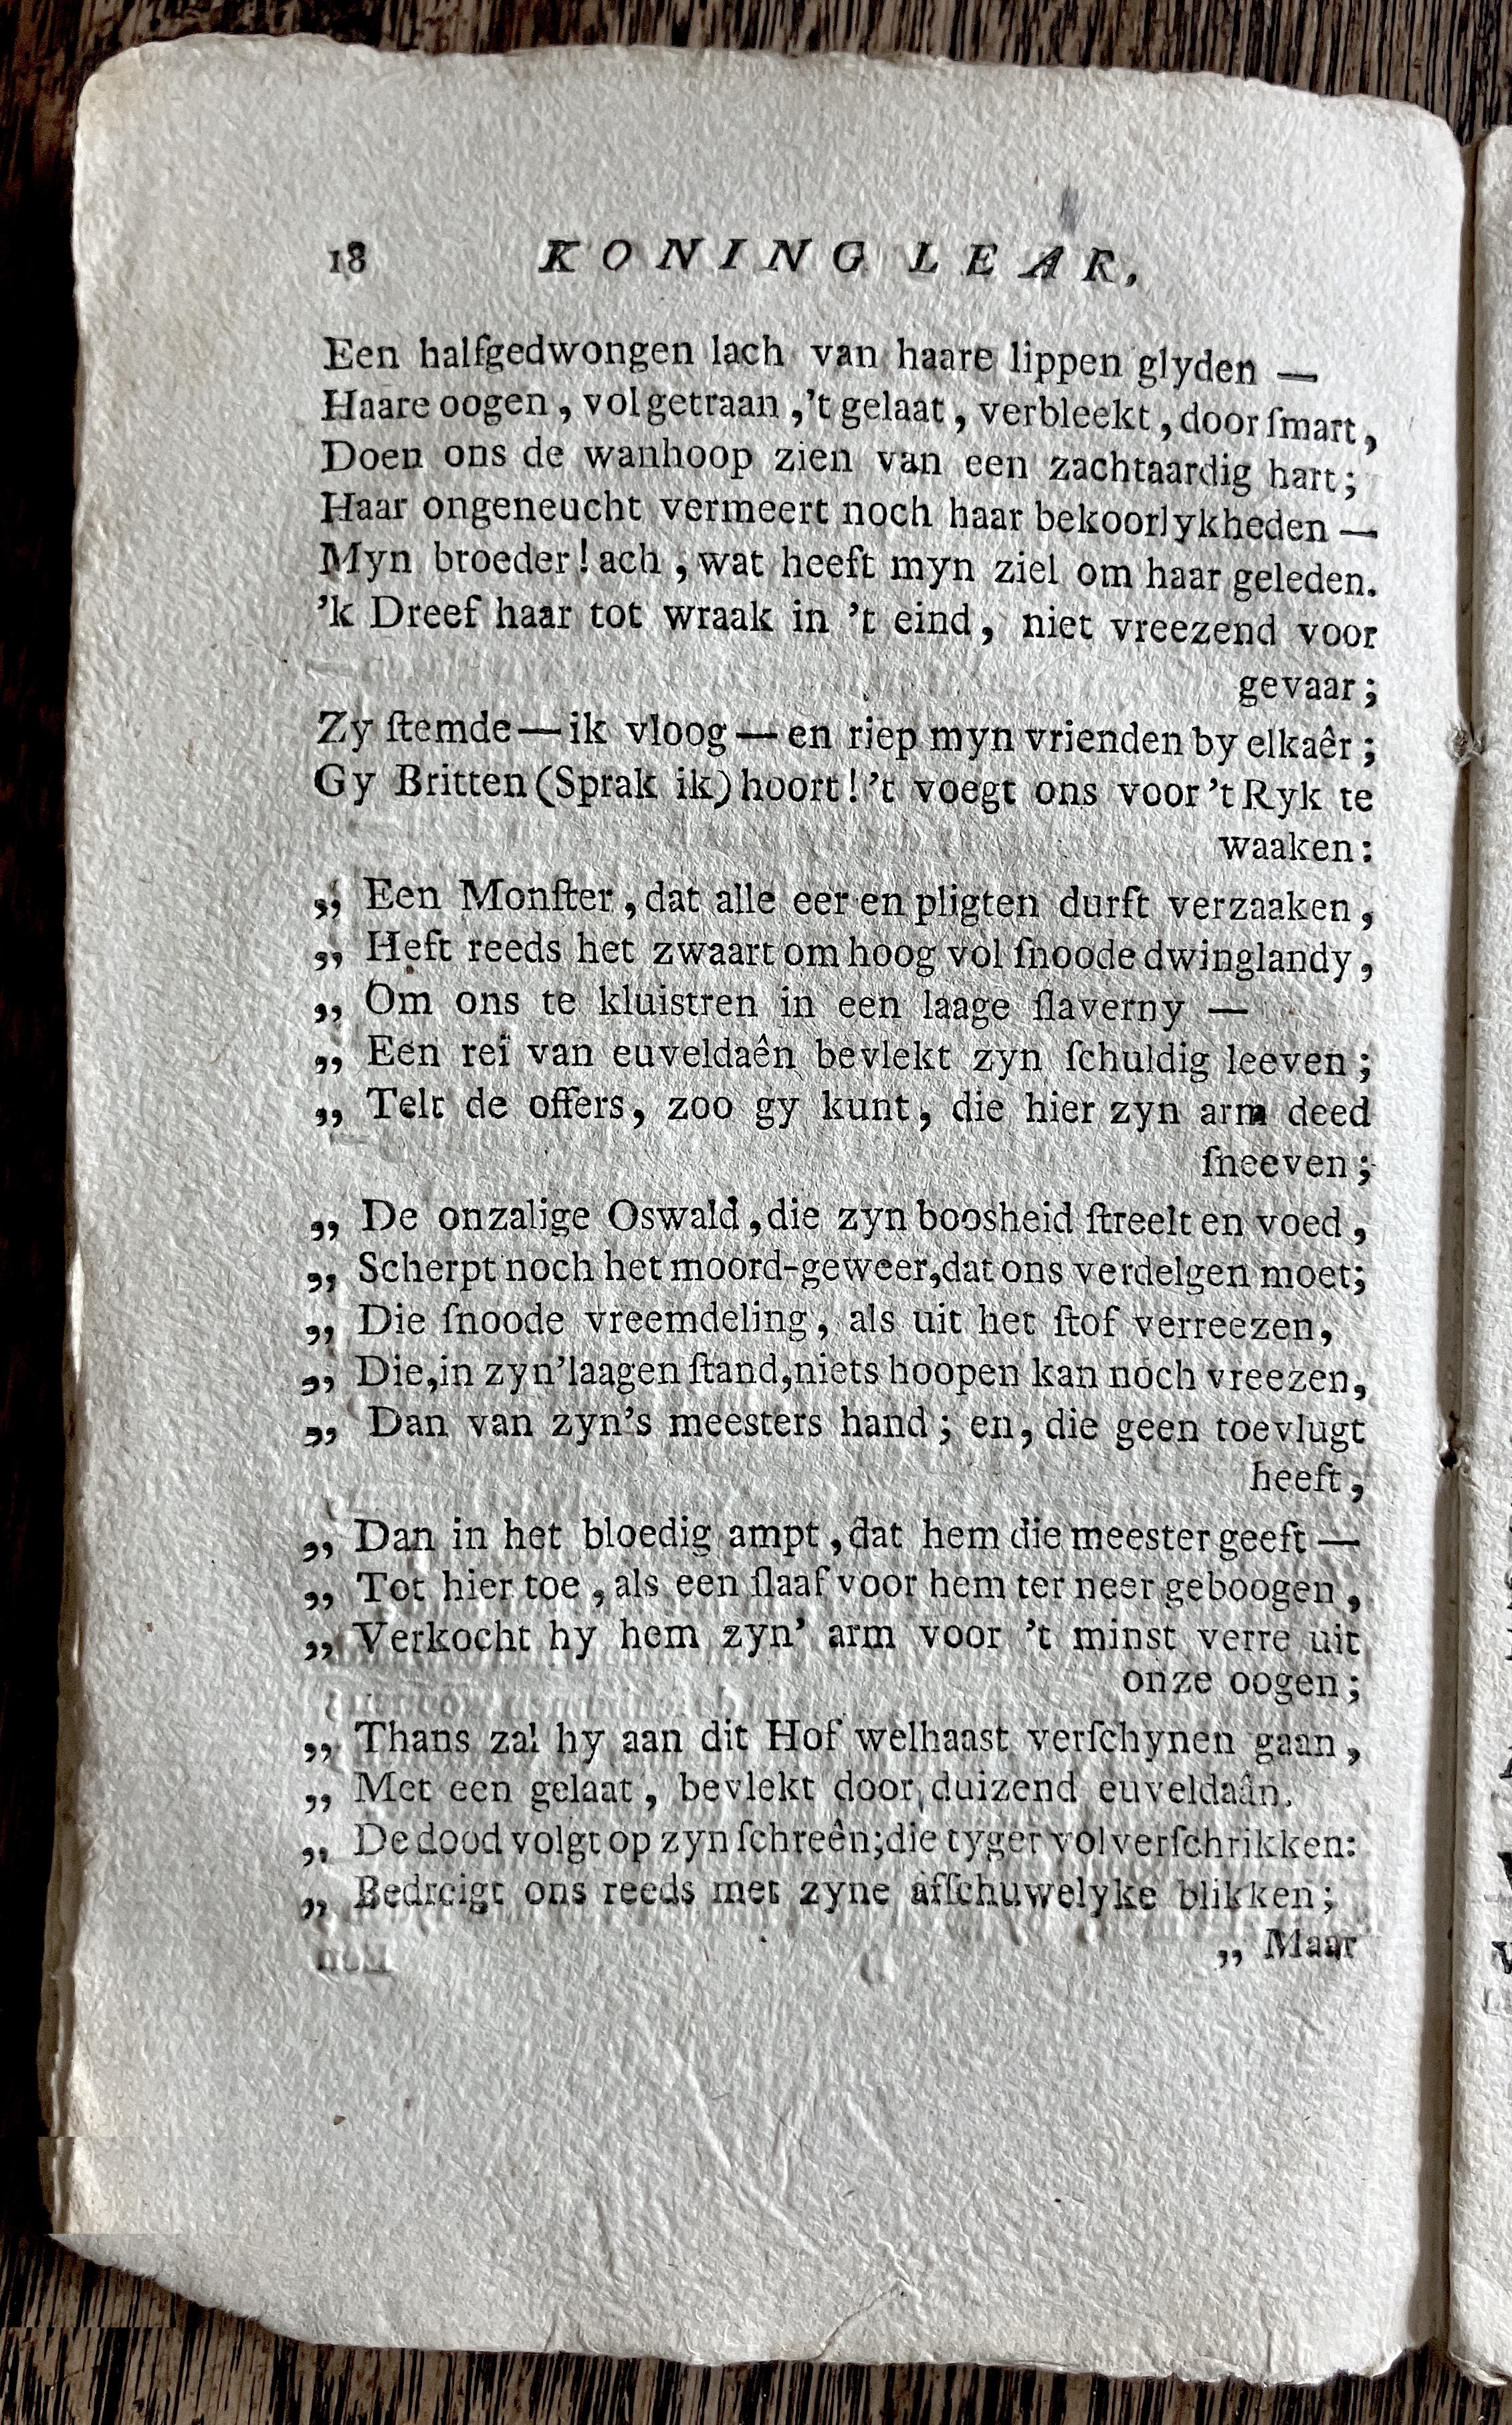 18 KONING LEAR,
Een halfgedwongen lach van haare lippen glyden —
Haare oogen, vol getraan, 't gelaat, verbleekt, door ſmart,
Doen ons de wanhoop zien van een zachtaardig hart;
Haar ongeneucht vermeert noch haar bekoorlykheden —
Myn broeder! ach, wat heeft myn ziel om haar geleden.
'k Dreef haar tot wraak in 't eind, niet vreezend voor
gevaar;
Zy ſtemde — ik vloog — en riep myn vrienden by elkaêr;
Gy Britten (Sprak ik) hoort! 't voegt ons voor 't Ryk te
waaken:
„ Een Monſter, dat alle eer en pligten durft verzaaken,
„ Heft reeds het zwaart om hoog vol ſnoode dwinglandy,
„ Om ons te kluistren in een laage ſlaverny —
„ Een rei van euveldaên bevlekt zyn ſchuldig leeven;
„ Telt de offers, zoo gy kunt, die hier zyn arm deed
ſneeven;
„ De onzalige Oswald, die zyn boosheid ſtreelt en voed,
„ Scherpt noch het moord-geweer, dat ons verdelgen moet;
„ Die ſnoode vreemdeling, als uit het ſtof verreezen,
„ Die, in zyn' laagen ſtand, niets hoopen kan noch vreezen,
„ Dan van zyn's meesters hand; en, die geen toevlugt
heeft,
„ Dan in het bloedig ampt, dat hem die meester geeft —
„ Tot hier toe, als een ſlaaf voor hem ter neer geboogen,
„ Verkocht hy hem zyn' arm voor 't minst verre uit
onze oogen;
„ Thans zal hy aan dit Hof welhaast verſchynen gaan,
„ Met een gelaat, bevlekt door duizend euveldaân.
„ De dood volgt op zyn ſchreên; die tyger vol verſchrikken:
„ Bedreigt ons reeds met zyne afſchuwelyke blikken;
„ Maar